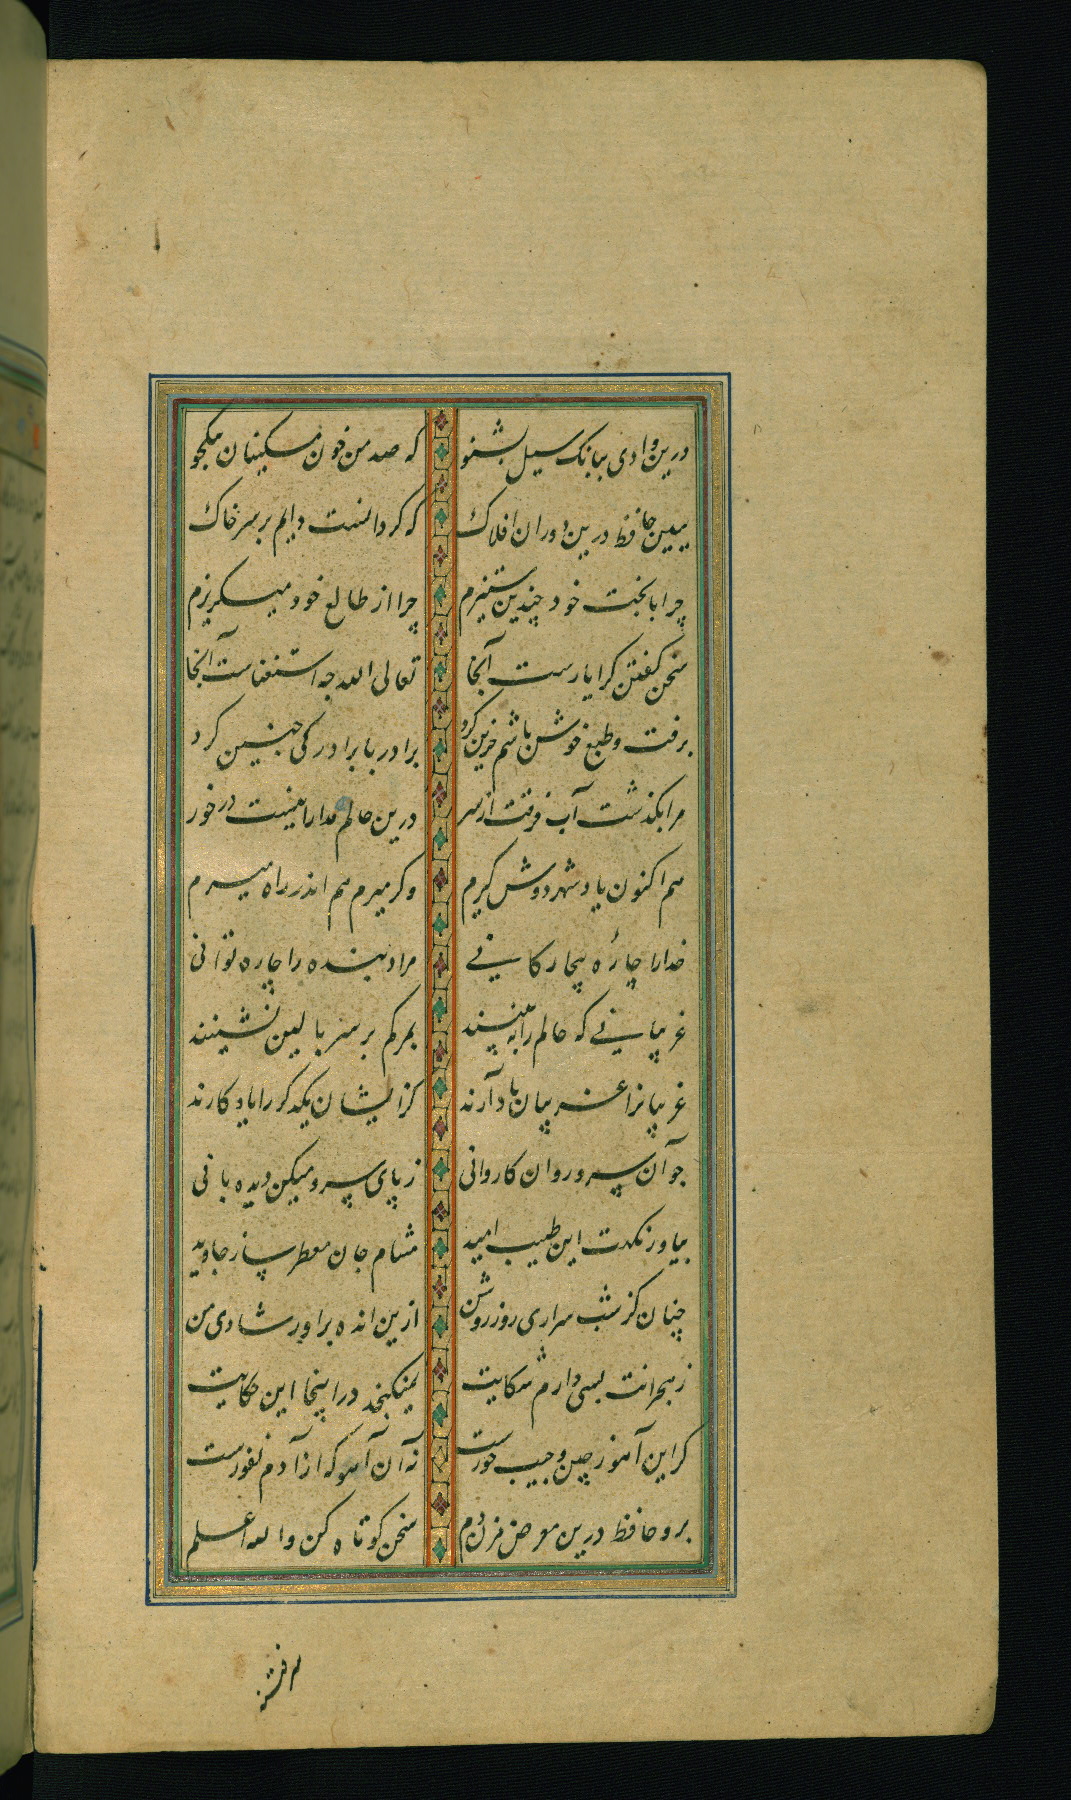 درین وادی ببانک سیل بشنو که صد من خون مسکینان بیکجو
ببین حافظ درین دوران افلاک که کردانست دایم بر سر خاک
چرا با بخت خود چندین ستیزم چرا از طالع خود میکریزم
سخن کفتن کرا یارست آنجا تعالی الله چه استغناست آنجا
برفت و طبع خوش باشم حزین کرد برادر با برادر کی چنین کرد
مرا بکذشت آب فرقت از سر درین حالم مدارا نیست در خور
هم اکنون یاد شهر دوش کیرم وکر میرم هم اندر راه میرم
خدارا چارٔه بیچارکانی مراد بنده را چاره توانی
غریبانی که حالم را ببینند بمرکم بر سر بالین نشینند
غریبانرا غریبان یاد آرند کزایشان یکدکر را یادکارند
چو آن سرو روان کاروانی ز پای سرو میکن دیده بانی
بیاور نکهت این طیب امید مشام جان معطر ساز جاوید
چنان کز شب براری روز روشن ازین انده براور شادی من
ز هجرانت بسی دارم شکایت نمیکنجد در اینجا این حکایت
کر این آهو ز چین وجیب حورست نه آن آهو که از آدم نفورست
برو حافظ درین معرض مزن دم سخن کوتاه کن والله اعلم